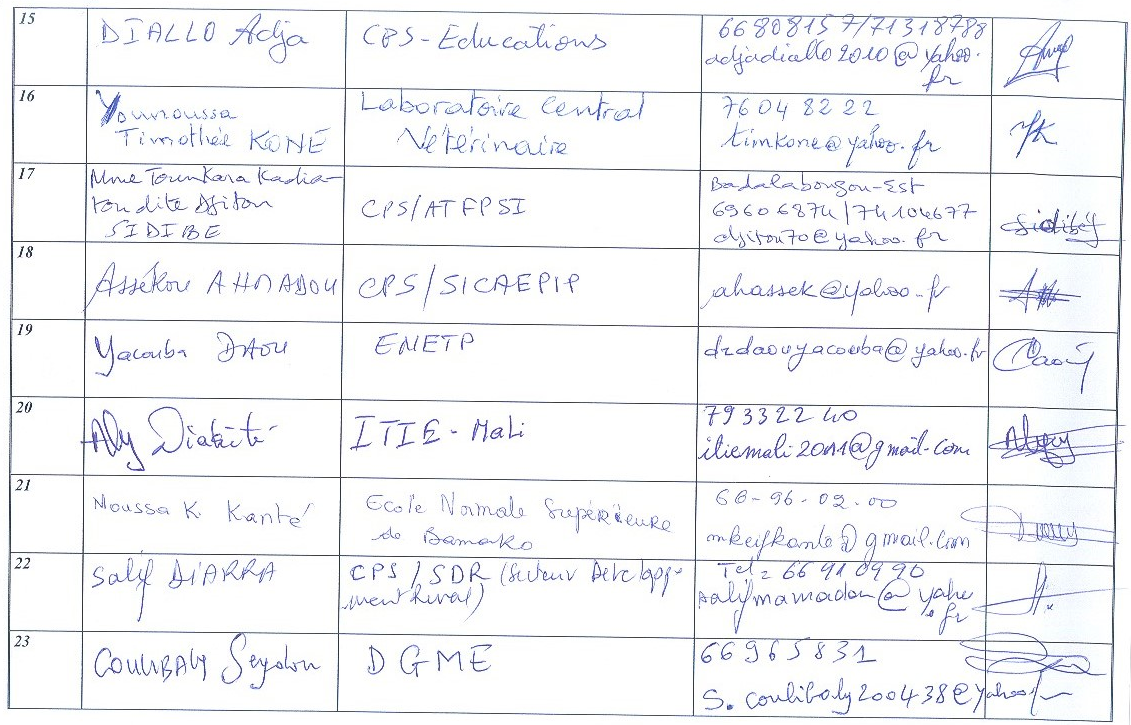 15
DIALLO Adja
CPS-Educations
66808157/71318788
adjadiallo2010@yahoo.
fr
16
Younoussa
Timothée KONE
Laboratoire Central
Vétérinaire
76 04 82 22
timkone@yahoo.fr
17
Mme Tounkara Kadia-
tou dite Djiton
SIDIBE
CPS/ATFPSI
Badalabougou-Est
69606874/74104677
djiton70@yahoo.fr
Sidibé
18
Assékou AHMADOU
CPS/SICAEPIP
ahassek@yahoo.fr
19
Yacouba DAOU
ENETP
drdaouyacouba@yahoo.fr
20
Aly Diakité
ITIE-Mali
79 33 22 40
itiemali2011@gmail.com
21
Moussa K. Kanté
Ecole Normale Supérieure
de Bamako
66-96-02-00
mkeifkante@gmail.com
22
Salif DIARRA
CPS/SDR (Secteur Développe-
ment Rural)
Tel: 66 91 09 90
salifmamadou@yaho
o.fr
23
COULIBALY Seydou
DGME
66965831
s.coulibaly200438@yahoo.fr